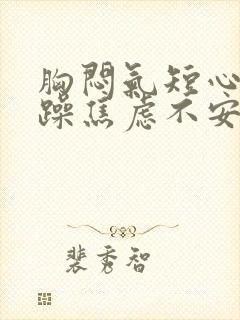 胸闷氣短心
躁焦虑不安
裴秀智